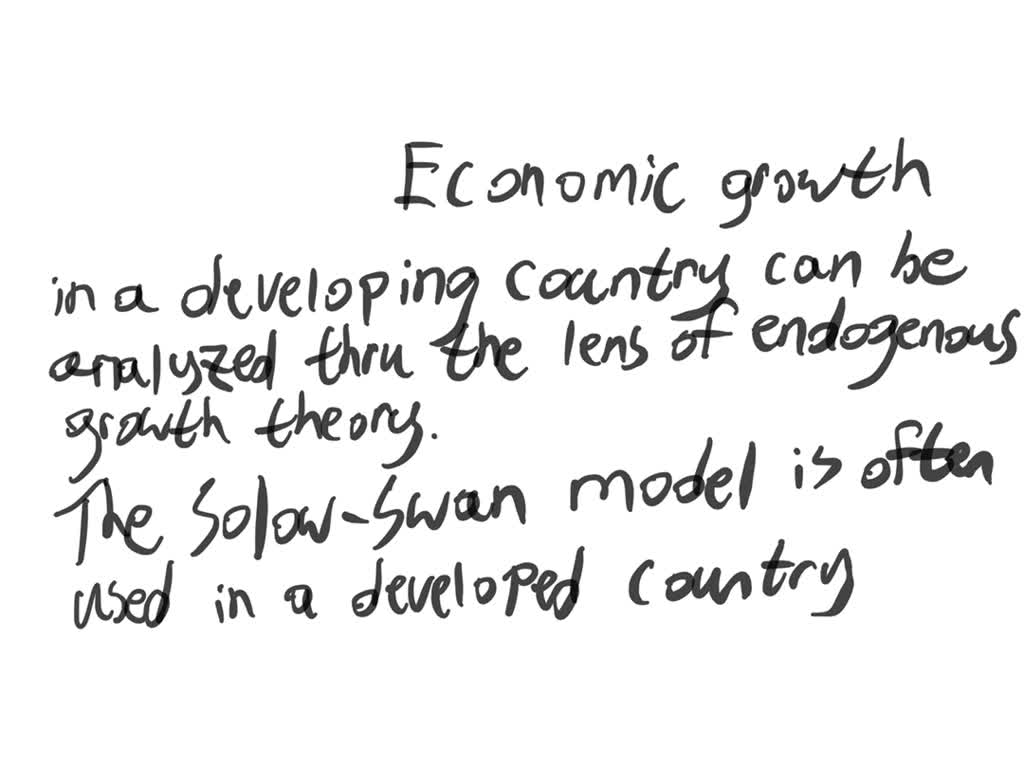 Economic growth
in a developing country can be
analyzed thru the lens of endogenous
growth theory.
The Solow-Swan model is often
used in a developed country